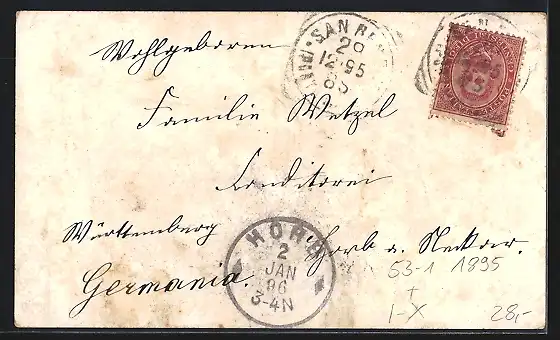 Wohlgeboren
SAN RE
29
12 95
Familie Wetzel
Conditorei
Württemberg
Horb a. Neckar.
Germania.
HORB
2
JAN
96
3-4N
53-1 1895
+
I-X
28,-